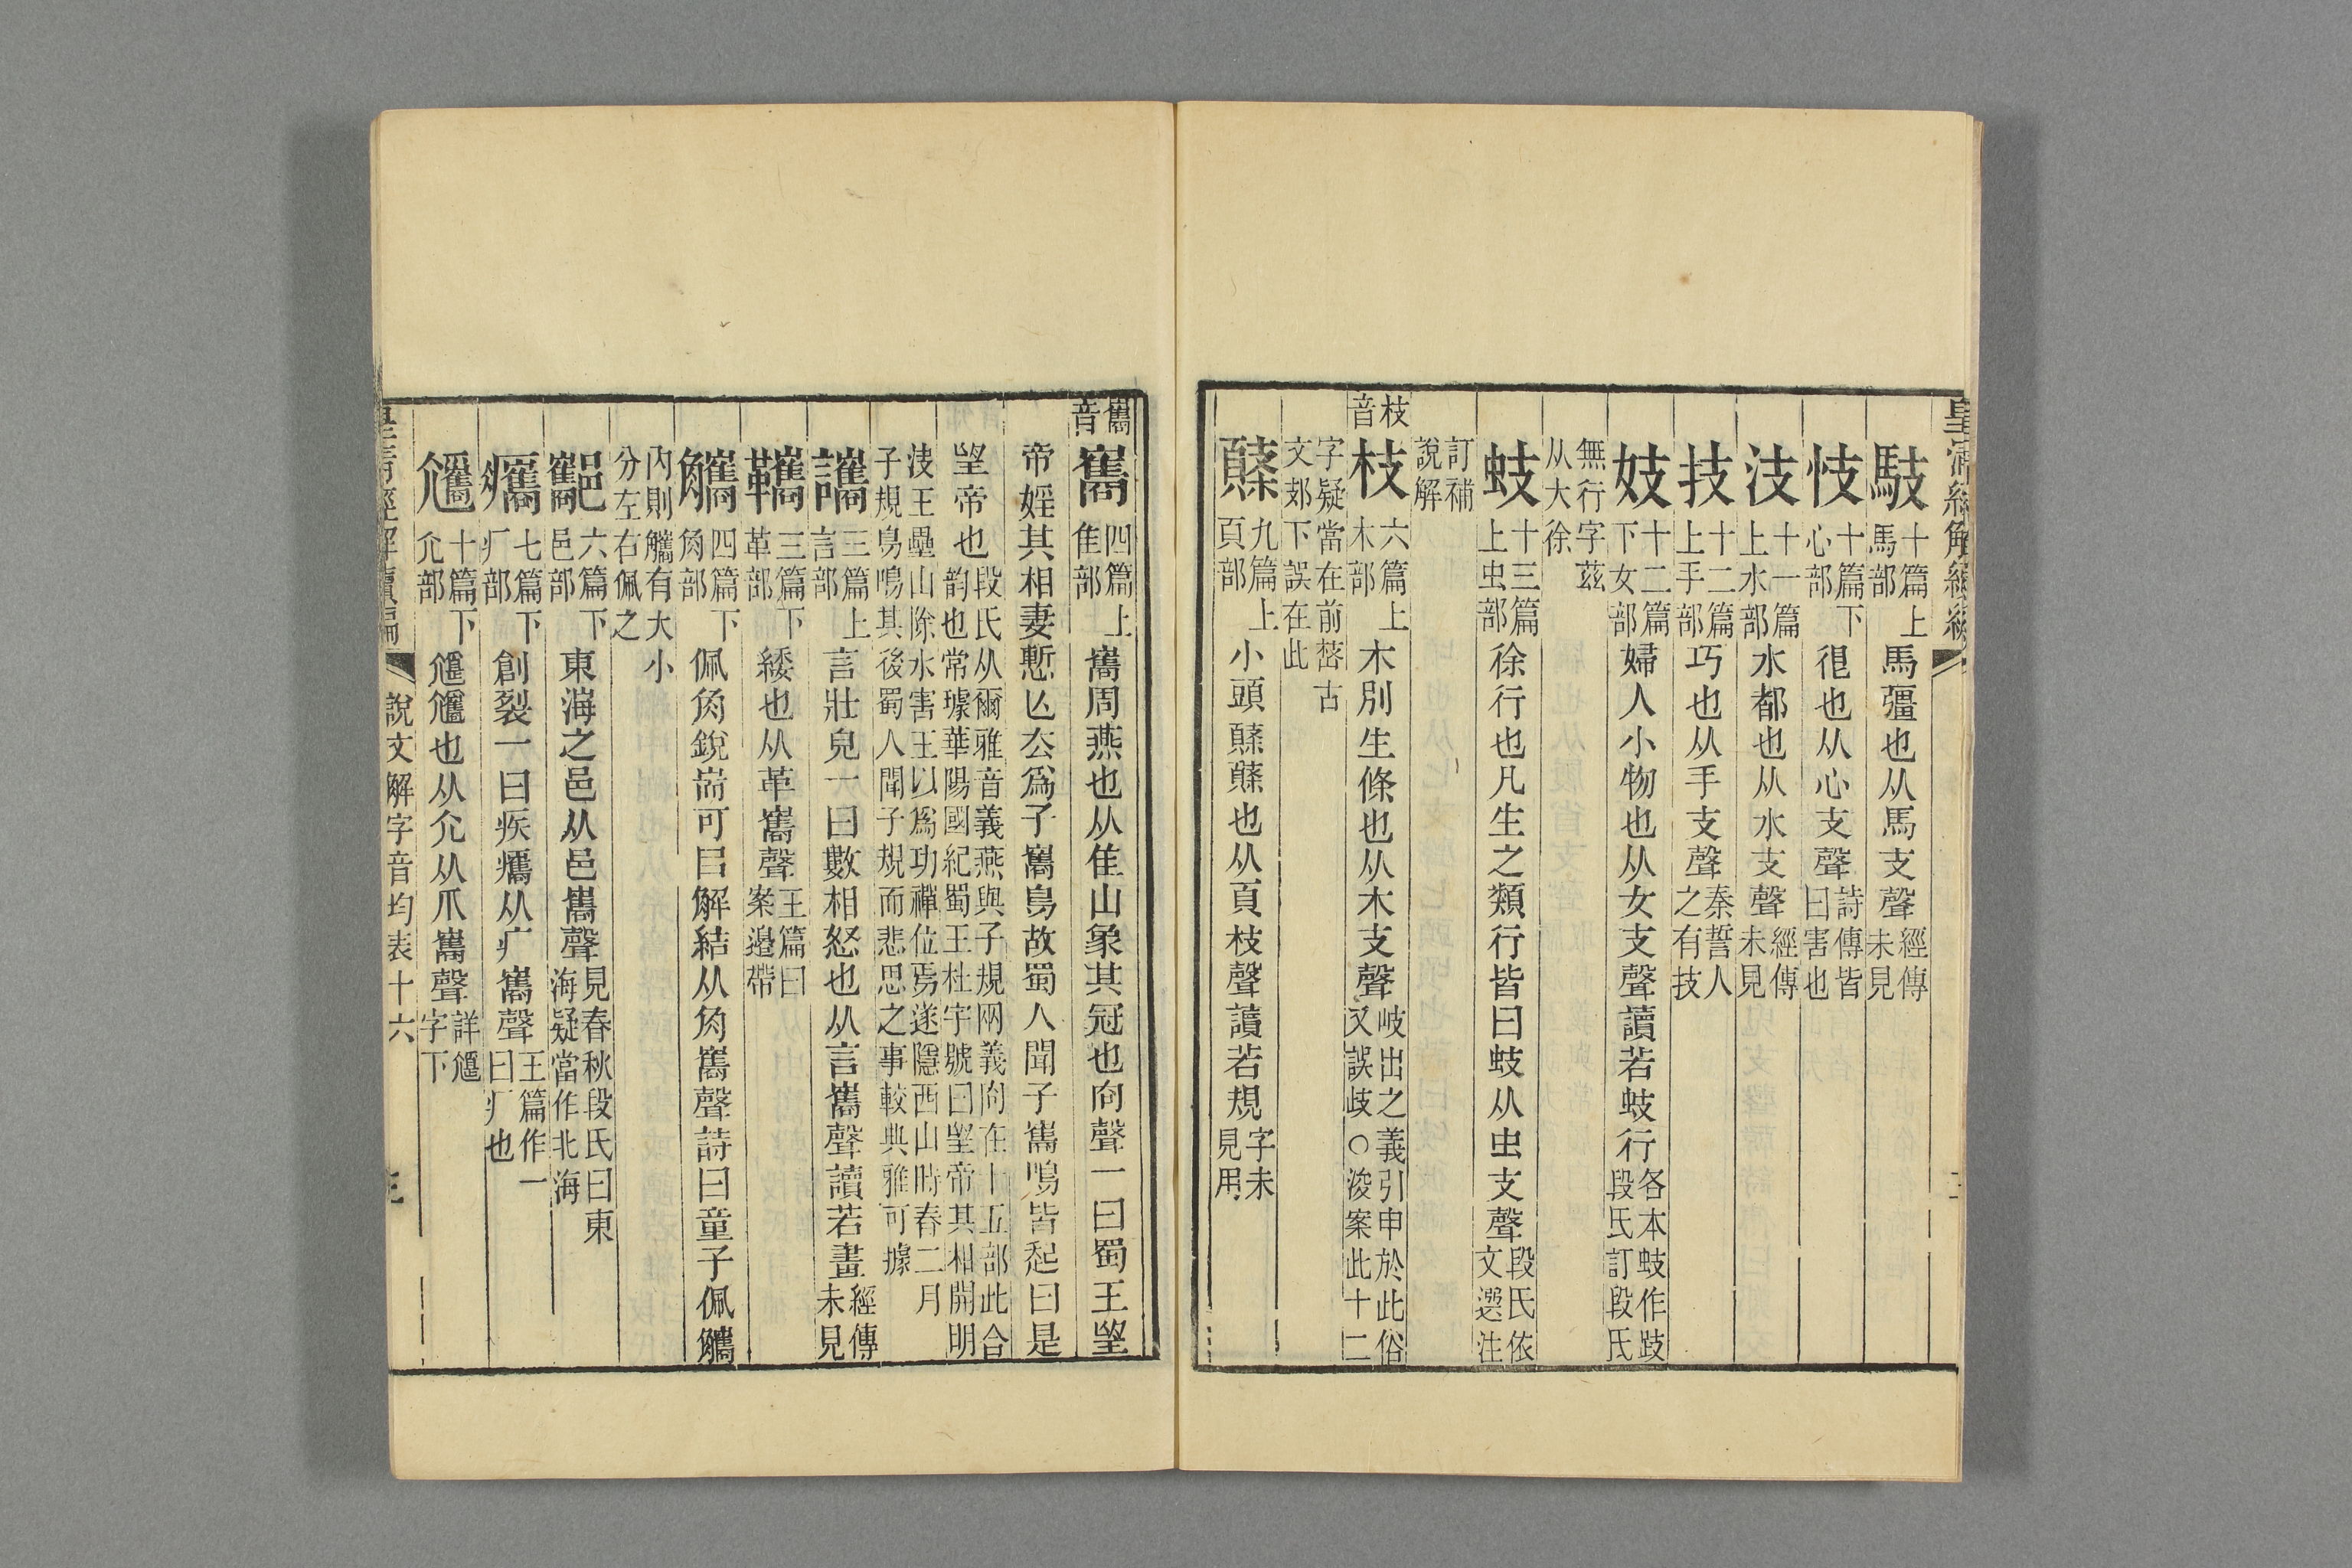 馶十篇上馬部馬彊也从馬支聲經傳未見
忮十篇下心部很也从心支聲詩傳皆曰害也
汥十一篇上水部水都也从水支聲經傳未見
技十二篇上手部巧也从手支聲秦誓人之有技
妓十二篇下女部婦人小物也从女支聲讀若蚑行各本蚑作跂段氏訂段氏
無行字茲从大徐
蚑十三篇上虫部徐行也凡生之類行皆曰蚑从虫支聲段氏依文選注
訂補說解
枝音枝六篇上木部木別生條也从木支聲岐出之義引申於此俗又誤歧○浚案此十二
字疑當在前𢻃古文郊下誤在此
䫌九篇上頁部小頭䫌䫌也从頁枝聲讀若規字未見用
巂音巂四篇上隹部巂周燕也从隹屮象其冠也㕯聲一曰蜀王望
帝婬其相妻慙亾去爲子巂鳥故蜀人聞子巂鳴皆起曰是
望帝也段氏从爾雅音義燕與子規兩義㕯在十五部此合韵也常璩華陽國紀蜀王杜宇號曰望帝其相開明
決玉壘山除水害王以爲功禪位焉遂隱西山時春二月子規鳥鳴其後蜀人聞子規而悲思之事較典雅可據
讗三篇上言部言壯皃一曰數相怒也从言巂聲讀若畫經傳未見
䪎三篇下革部緌也从革巂聲玉篇曰案邊帶
觿四篇下角部佩角銳耑可㠯解結从角巂聲詩曰童子佩觿
內則觿有大小分左右佩之
酅六篇下邑部東海之邑从邑巂聲見春秋段氏曰東海疑當作北海
㽯七篇下疒部創裂一曰疾㽯从疒巂聲玉篇作一曰疒也
𡰢十篇下尣部𡯷𡰢也从尣从爪巂聲詳𡯷字下
說文解字音均表十六